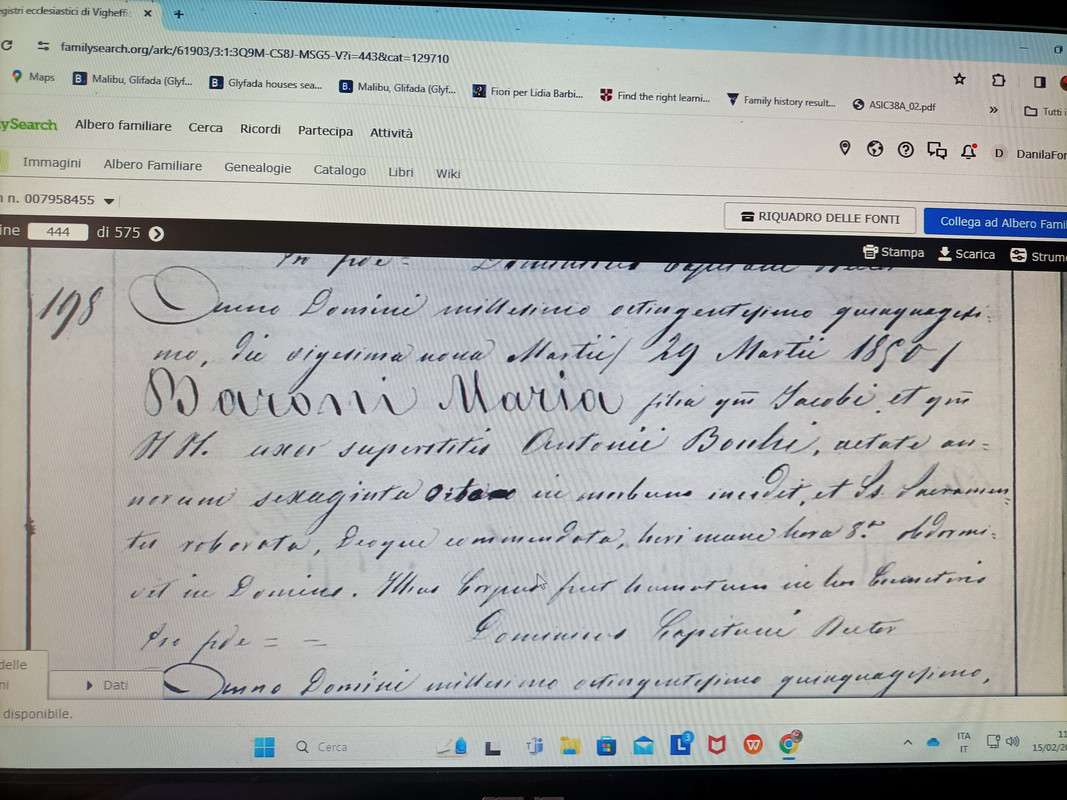 egistri ecclesiastici di Vigheffi
familysearch.org/ark:/61903/3:1:3Q9M-CS8J-MSG5-V?i=443&cat=129710
Maps
Malibu, Glifada (Glyf...
Glyfada houses sea...
Malibu, Glifada (Glyf...
Fiori per Lidia Barbi...
Find the right learni...
Family history result...
ASIC38A_02.pdf
»
Tutti i
lySearch Albero familiare Cerca Ricordi Partecipa Attività
D DanilaFor
Immagini Albero Familiare Genealogie Catalogo Libri Wiki
n. 007958455
RIQUADRO DELLE FONTI
Collega ad Albero Famil
ine 444 di 575
Stampa Scarica Strum
In fde =
198
Anno Domini millesimo octingentesimo quinquagesi:
mo, die vigesima nona Martii / 29 Martii 1850 /
Baroni Maria filia qm Jacobi et qm
N N. uxor superstitis Antonii Bonhi, aetate an=
norum sexaginta octo in morbum incidit, et Ss. Sacramen
tis roborata, Deoque commendata, heri mane hora 8.a obdormi:
vit in Domino. Illius Corpus fuit humatum in hoc Cemeterio
In fde = = Dominicus Capitani Rector
Anno Domini millesimo octingentesimo quinquagesimo,
delle
ni
Dati
disponibile.
Cerca
3
ITA
IT
11
15/02/20